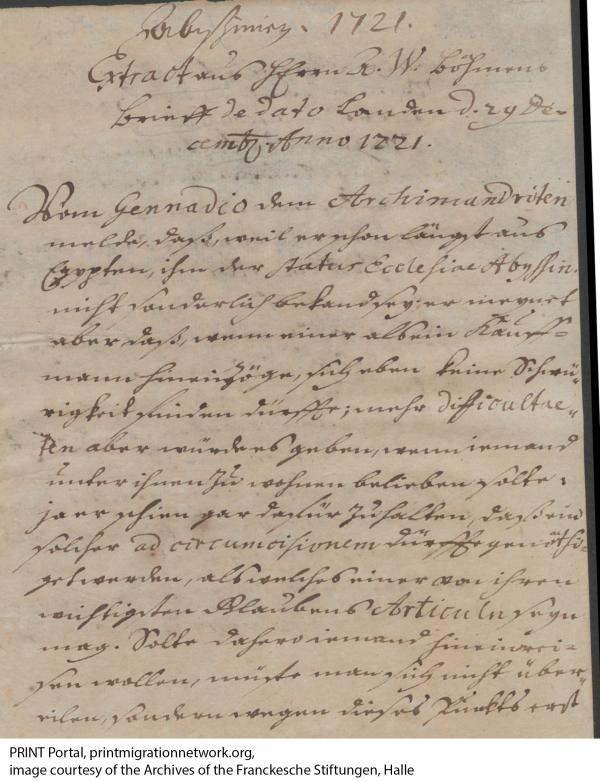 Habissinien. 1721.
Extract aus Herrn A. W. Böhmens
brieff de dato Londen d. 29 De-
cembr. Anno 1721.
Vom Gennadio dem Archimandriten
melde, daß, weil er schon längst aus
Egypten, ihm der status Ecclesiae Abyssin.
nicht sonderlich bekand sey: er meynet
aber daß, wenn einer als ein Kauff-
mann hineinzöge, sich eben keine Schwü-
rigkeit finden dürffte; mehr difficultae-
ten aber würde es geben, wenn iemand
unter ihnen zu wohnen belieben solte:
ja er schien gar dafür zuhalten, daß ein
solcher ad circumcisionem dürffte genöthi-
get werden, als welches einer von ihren
wichtigsten Glaubens Articuln seyn
mag. Solte dahero iemand hineinrei-
sen wollen, müste man sich nicht über-
eilen, sondern wegen dieses Puncts erst
PRINT Portal, printmigrationnetwork.org,
image courtesy of the Archives of the Franckesche Stiftungen, Halle